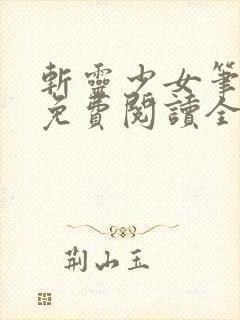 斬靈少女筆
免費閱讀全
荆山玉